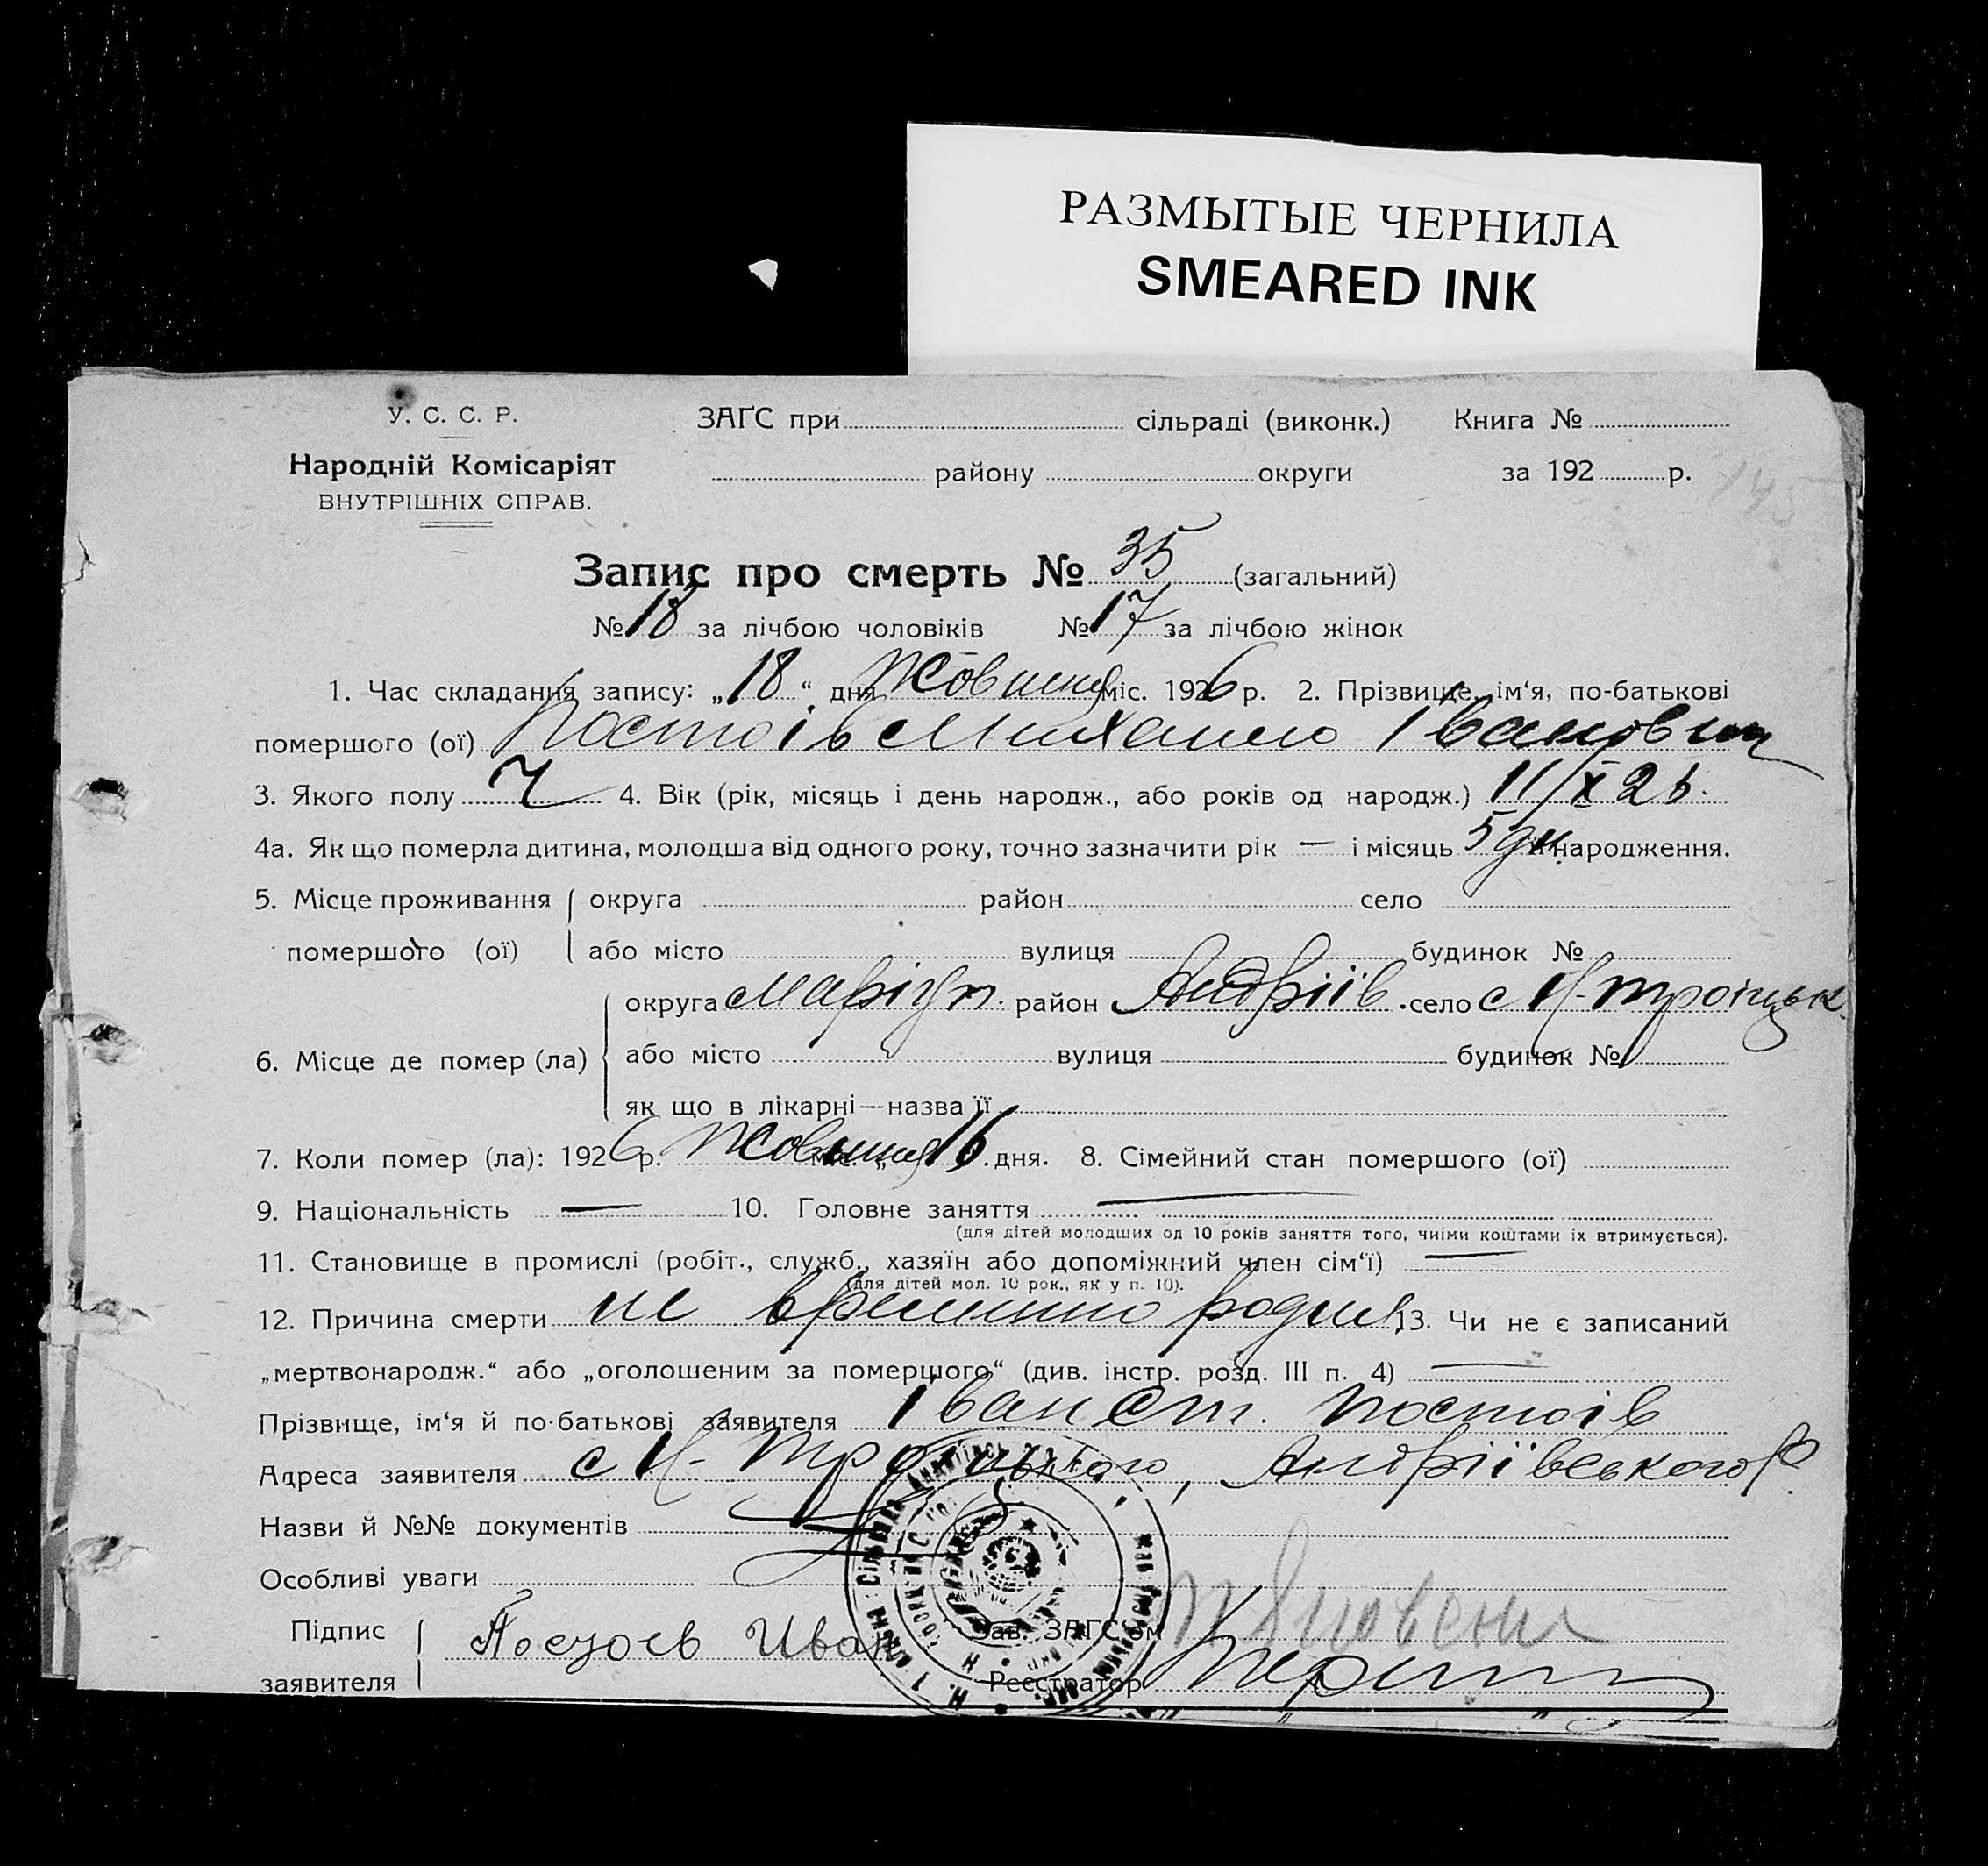 РАЗМЫТЫЕ ЧЕРНИЛА
SMEARED INK
У. С. С. Р.
ЗАҐС при сільраді (виконк.) Книга №
Народній Комісаріят
району округи за 192 р.
145
ВНУТРІШНІХ СПРАВ.
Запис про смерть № 35 (загальний)
№ 18 за лічбою чоловіків № 17 за лічбою жінок
1. Час складання запису: „18“ дня Жовтня міс. 1926 р. 2. Прізвище, ім‘я, по-батькові
помершого (ої) Постоів Михаило Іванович
3. Якого полу Ч 4. Вік (рік, місяць і день народж., або років од народж.) 11/X 26.
4а. Як що померла дитина, молодша від одного року, точно зазначити рік — і місяць 5 дн. народження.
5. Місце проживання округа район село
помершого (ої) або місто вулиця будинок №
округа Маріуп. район Андріїв. село с Н-троіцьк.
6. Місце де помер (ла) або місто вулиця будинок №
як що в лікарні—назва її
7. Коли помер (ла): 1926 р. Жовтня 16 дня. 8. Сімейний стан помершого (ої)
9. Національність — 10. Головне заняття —
(для дітей молодших од 10 років заняття того, чиїми коштами їх втримується).
11. Становище в промислі (робіт., служб., хазяїн або допоміжний член сім‘ї) —
(для дітей мол. 10 рок., як у п. 10).
12. Причина смерти не временно родив. 13. Чи не є записаний
„мертвонародж.“ або „оголошеним за помершого“ (див. інстр. розд. III п. 4) —
Прізвище, ім‘я й по-батькові заявителя Іван Ст. Постоів
Адреса заявителя с Н-Троіцького, Андріївського Р.
Назви й №№ документів
Особливі уваги
Підпис Зав. ЗАҐС‘ом
заявителя Иван Реєстратор